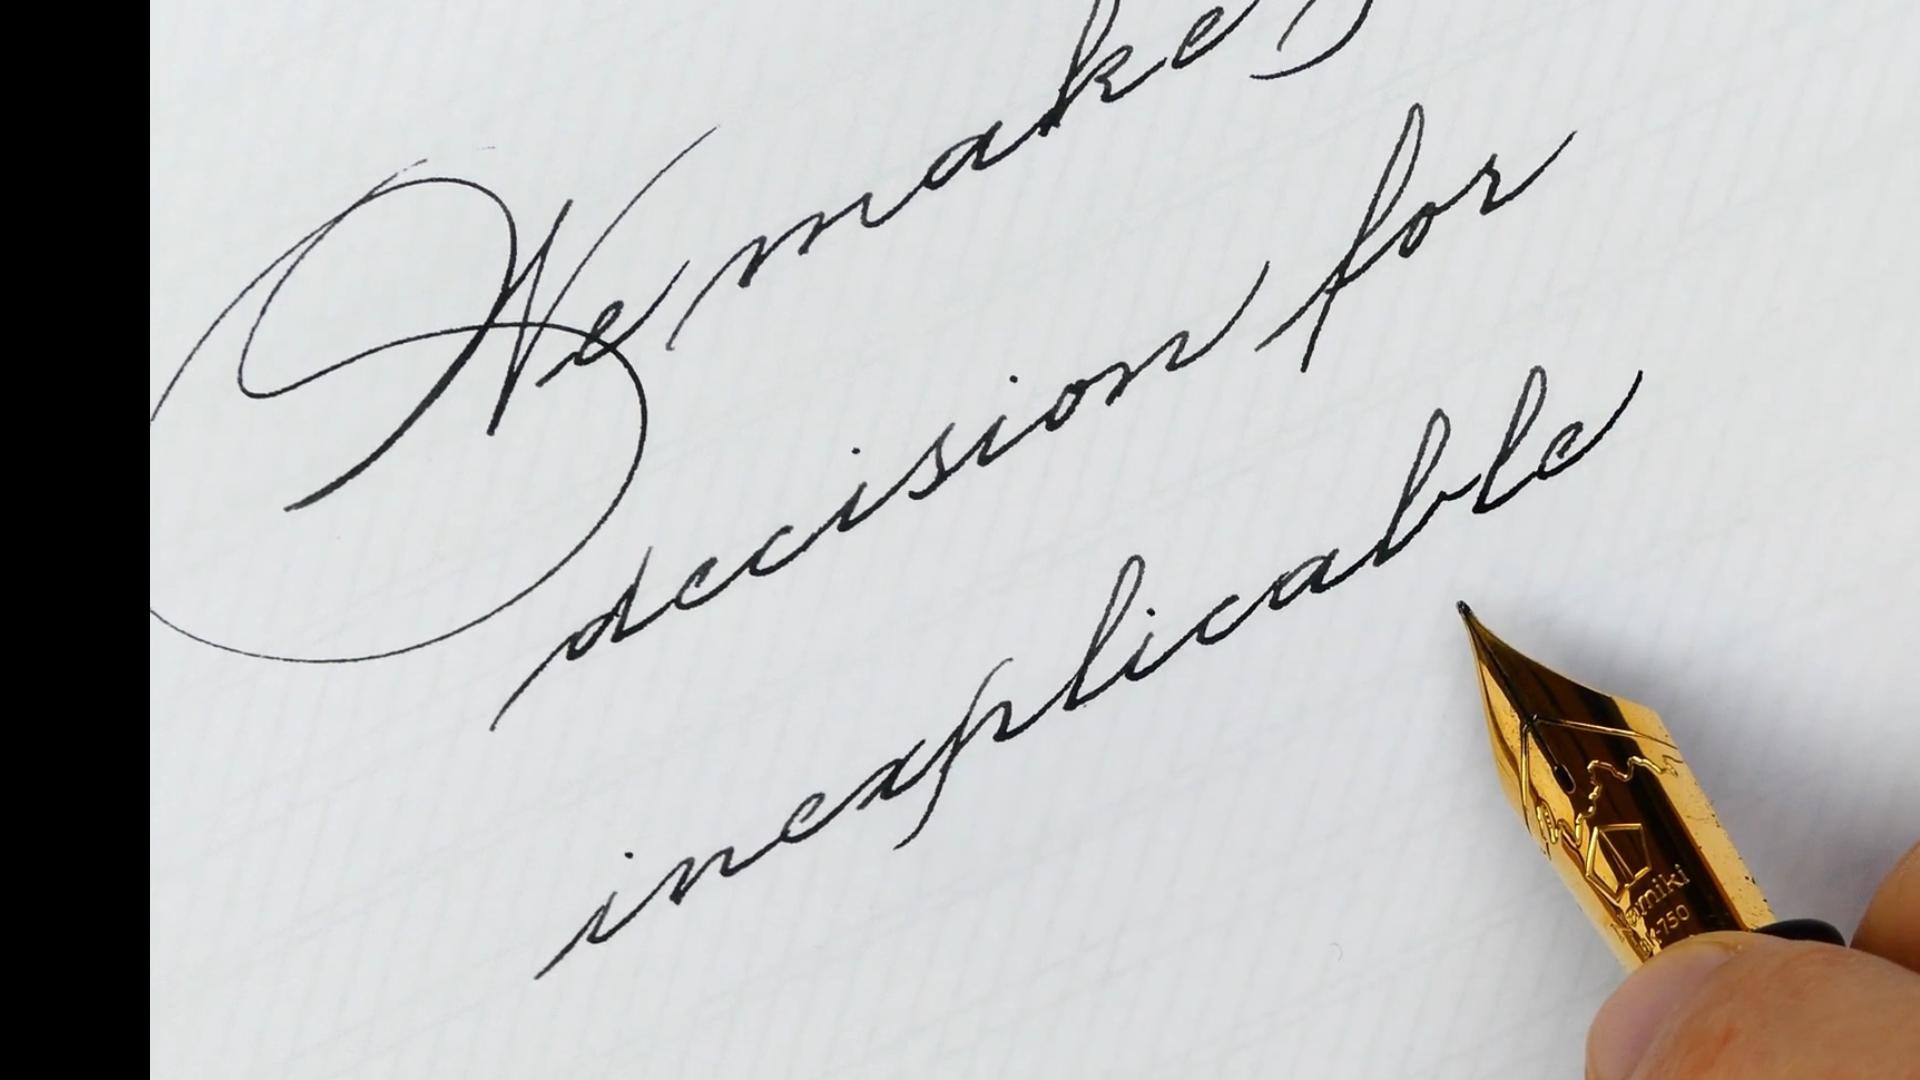 He makes
decision for
inexplicable
Namiki
750